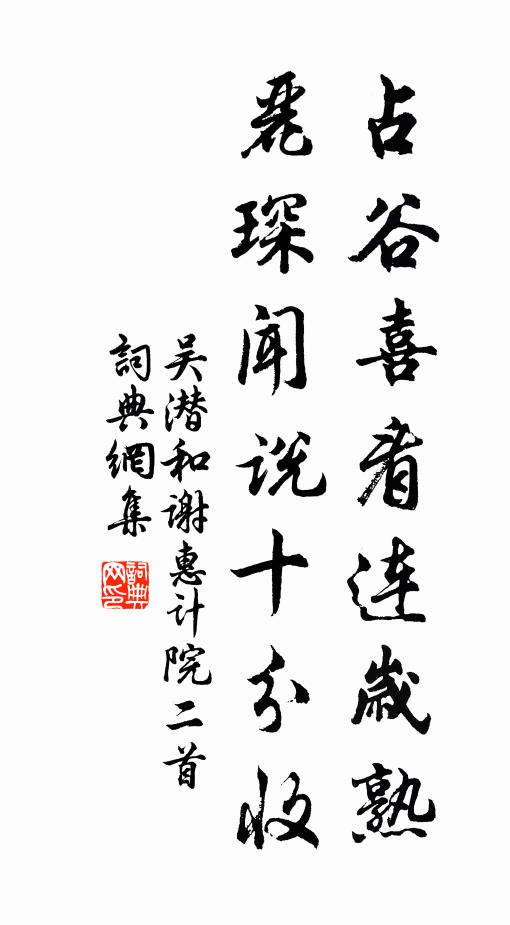 占谷喜看连岁熟
麂琛闻说十分收
吴潜和谢惠计院二首
詞典網集
詞典网印